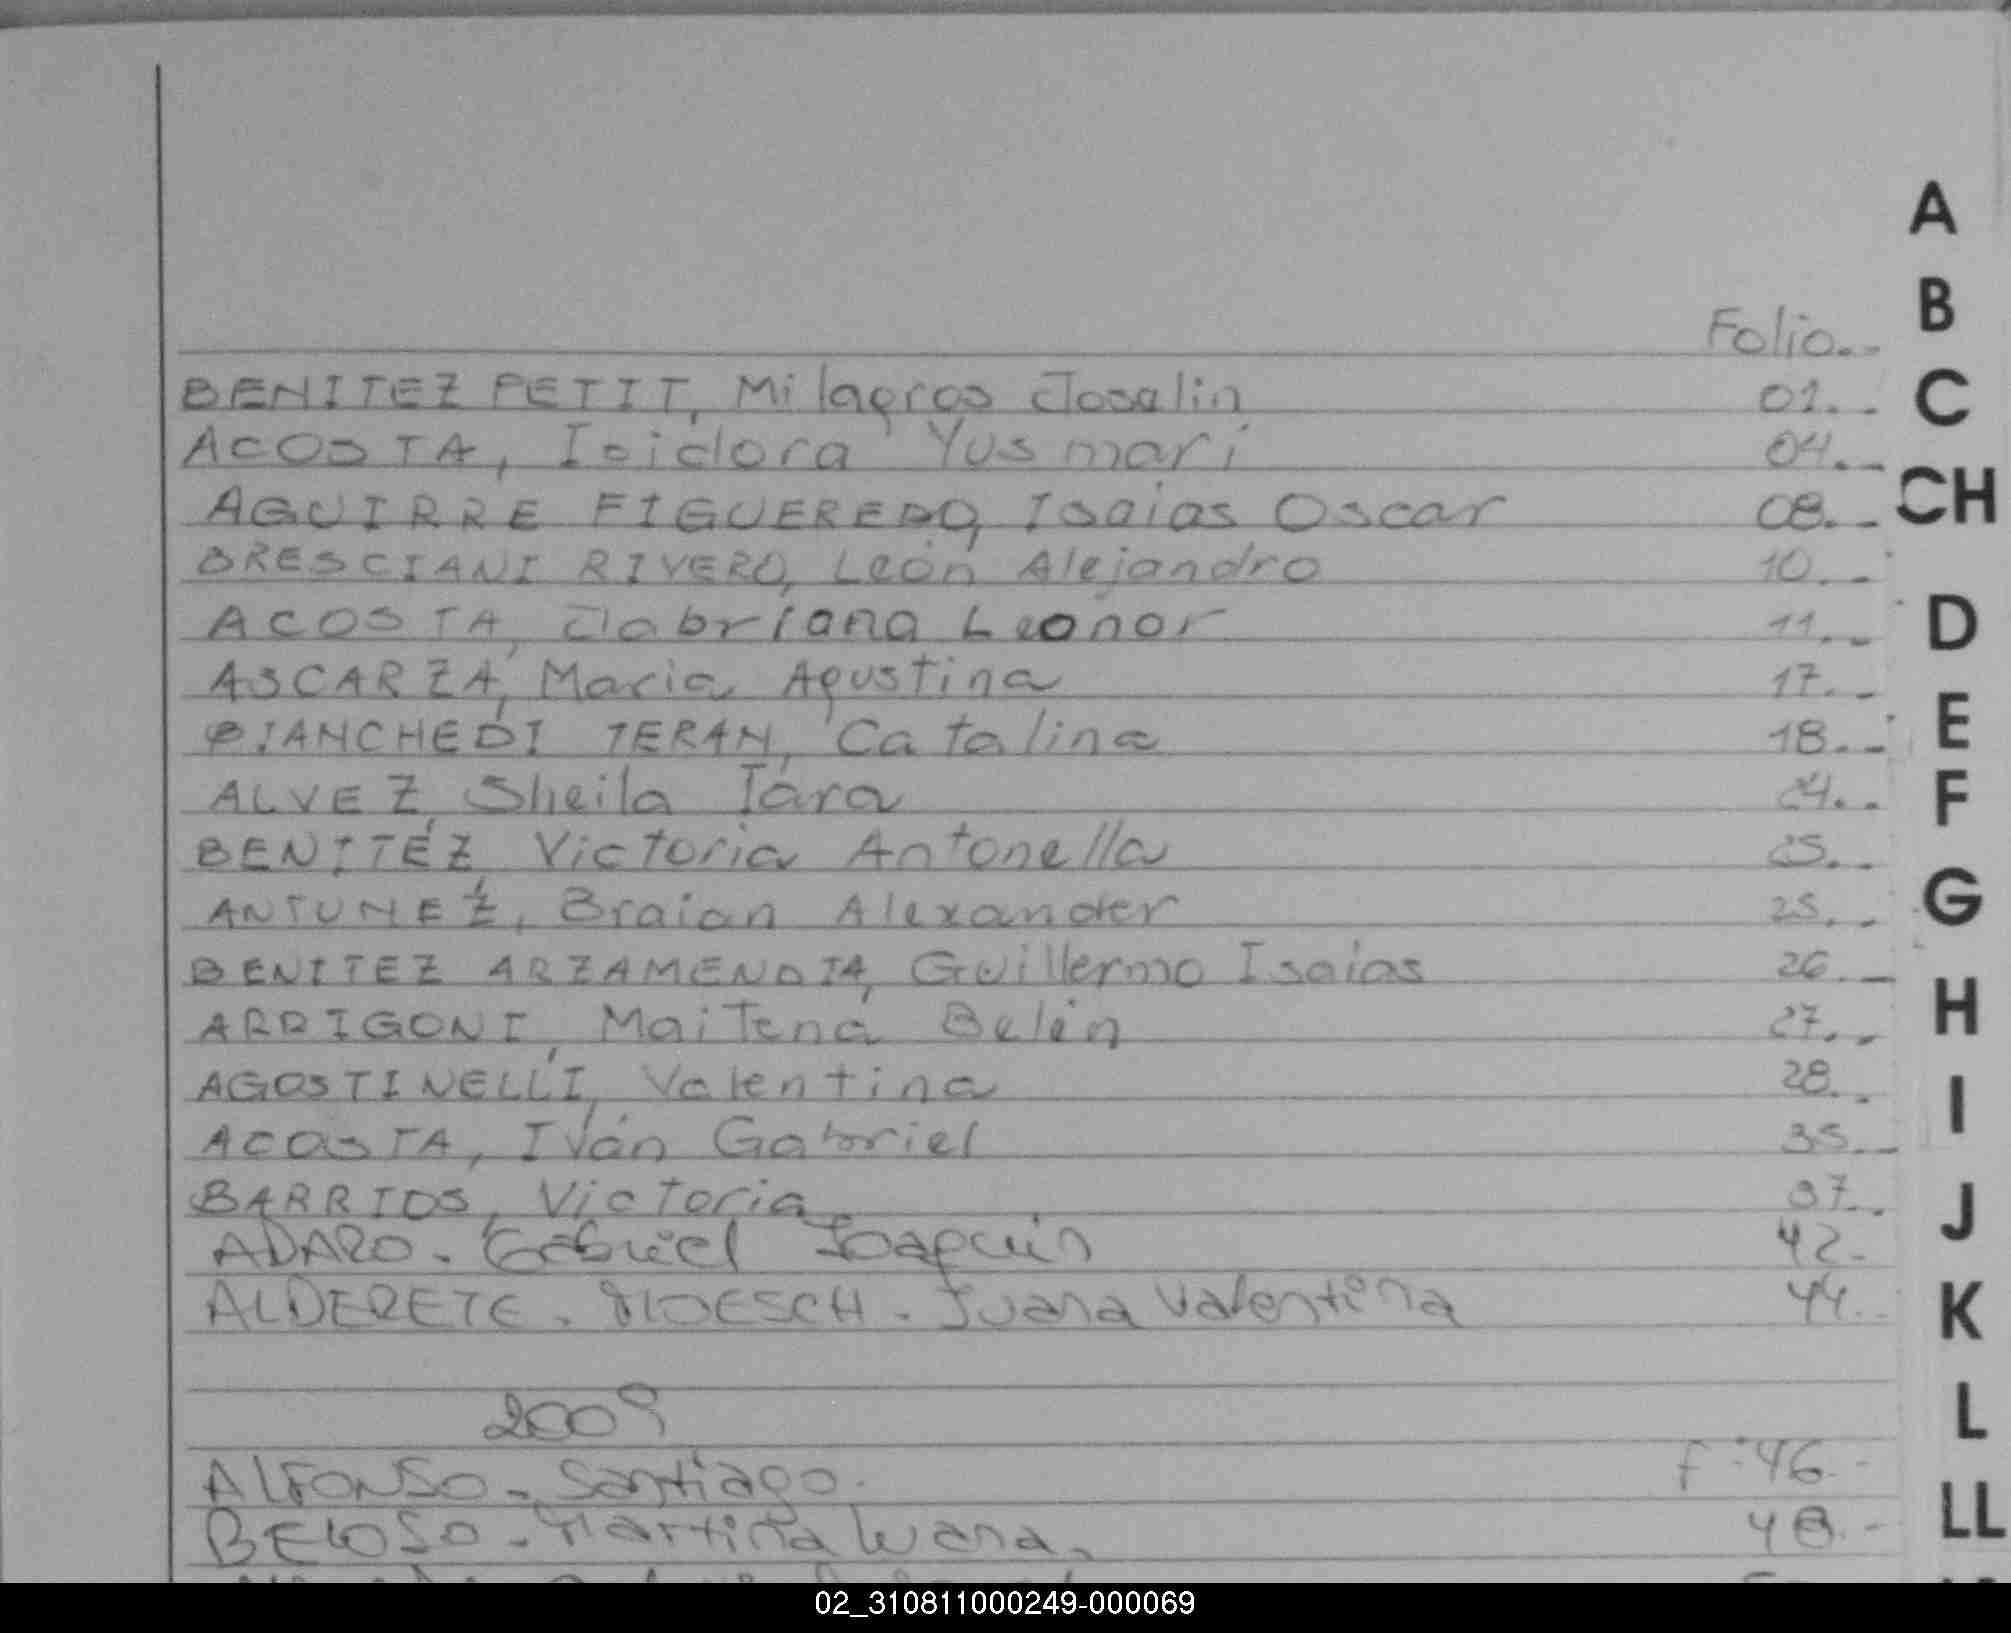 Folio..
BENITEZ PETIT, Milagros Josalin 01...
ACOSTA, Isidora Yusmari 04...
AGUIRRE FIGUEREDO, Isaias Oscar 08...
BRESCIANI RIVERO, León Alejandro 10...
ACOSTA, Dabriana Leonor 11...
ASCARZA, Maria Agustina 17...
BIANCHEDI TERAN, Catalina 18...
ALVEZ, Sheila Iara 24...
BENITEZ, Victoria Antonella 25...
ANTUNEZ, Braian Alexander 25...
BENITEZ ARZAMENDIA, Guillermo Isaias 26...
ARRIGONI, Maitena Belén 27...
AGOSTINELLI, Valentina 28...
ACOSTA, Iván Gabriel 35...
BARRIOS, Victoria 37...
ADARO. Gabriel Joaquin 42.
ALDERETE. MOESCH. Juana Valentina 44..
2009
ALFONSO. Santiago. F:46.-
BELOSO. Martina Luana. 48.-
A
B
C
CH
D
E
F
G
H
I
J
K
L
LL
02_310811000249-000069